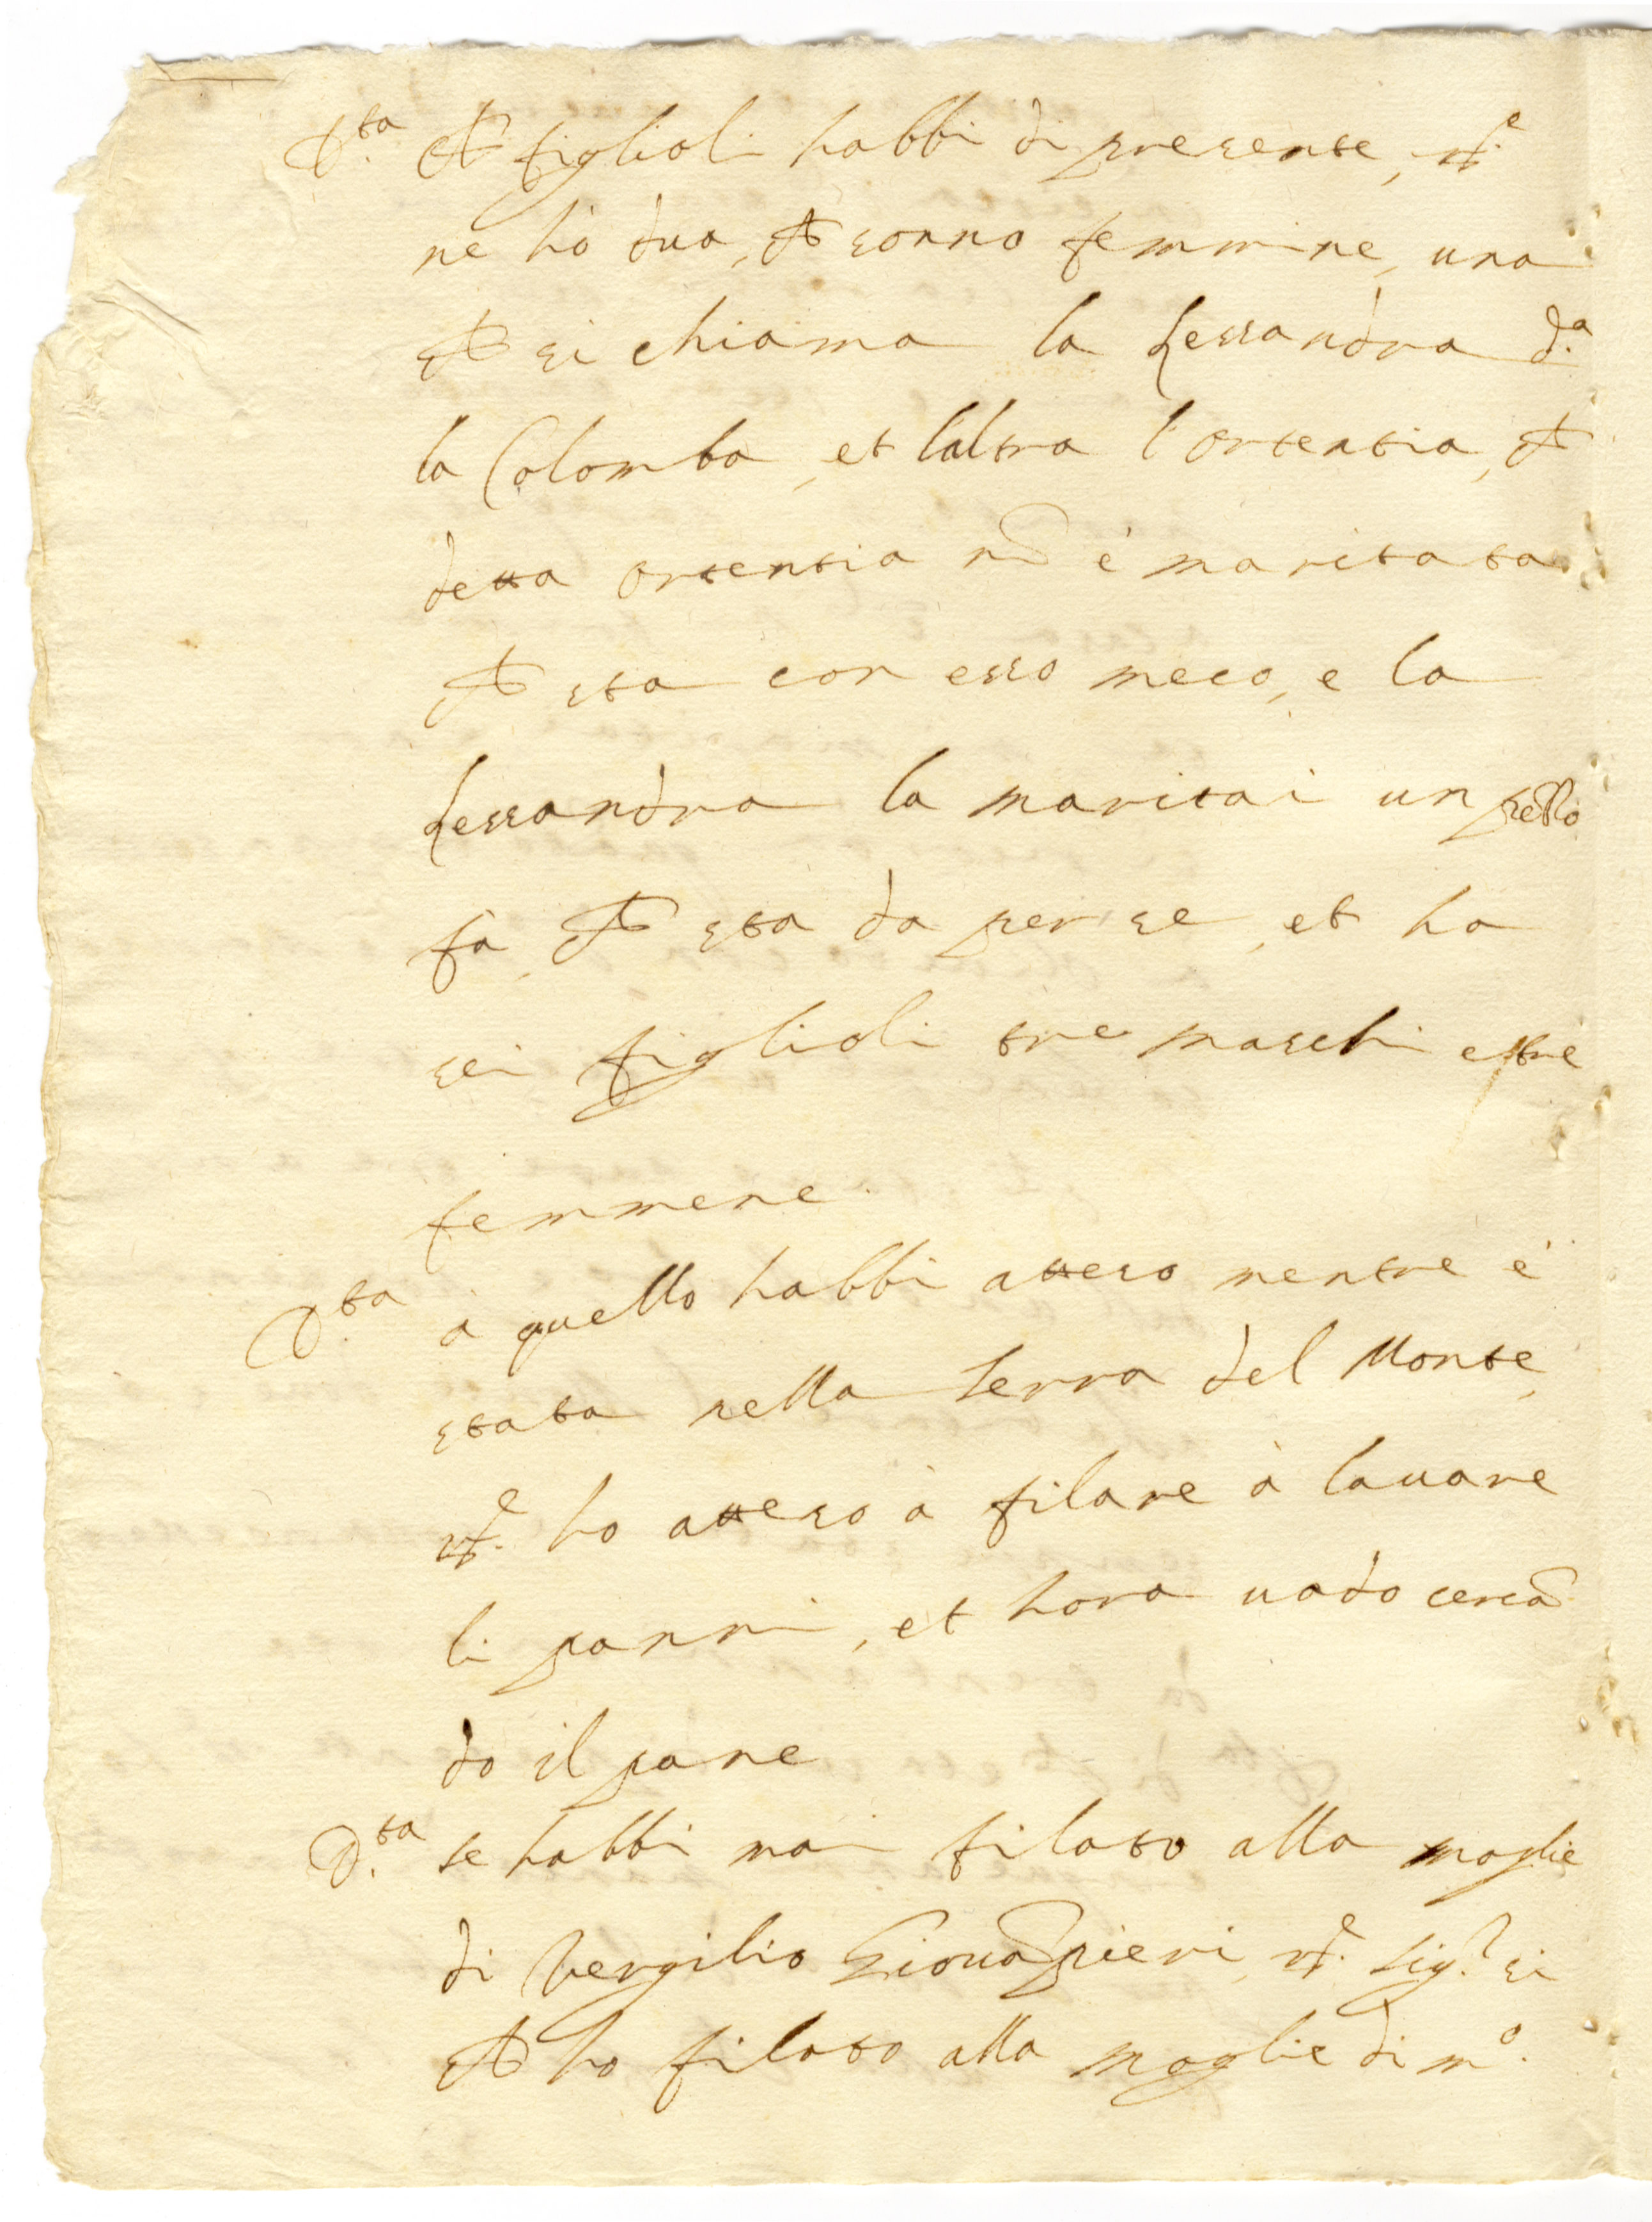 D.ta ch figlioli habbi di presente, rx.e
ne hò dua, ch sonno femmine, una
ch si chiama la Lessandra d.a
la Colomba, et laltra l'ortentia, ch
detta ortentia nõ è maritata
ch sta con esso meco, e la
Lessandra la maritai un pezzo
fa, ch sta da per se, et ha
sei figlioli tre maschi e tre
femmene.
D.ta à quello habbi atteso mentre è
stata nella terra del Monte,
rx.e ho atteso à filare à lauare
li panni, et hora uado cercã
do il pane
D.ta se habbi mai filato alla moglie
di Vergilio Giouãpieri, rx.e sig.r si
ch ho filato alla moglie di m.o